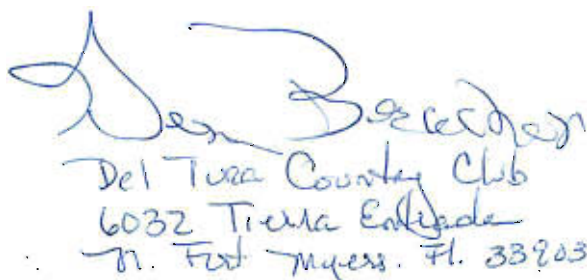 Del Tura Country Club
6032 Tierra Entrada
N. Fort Myers. Fl. 33903